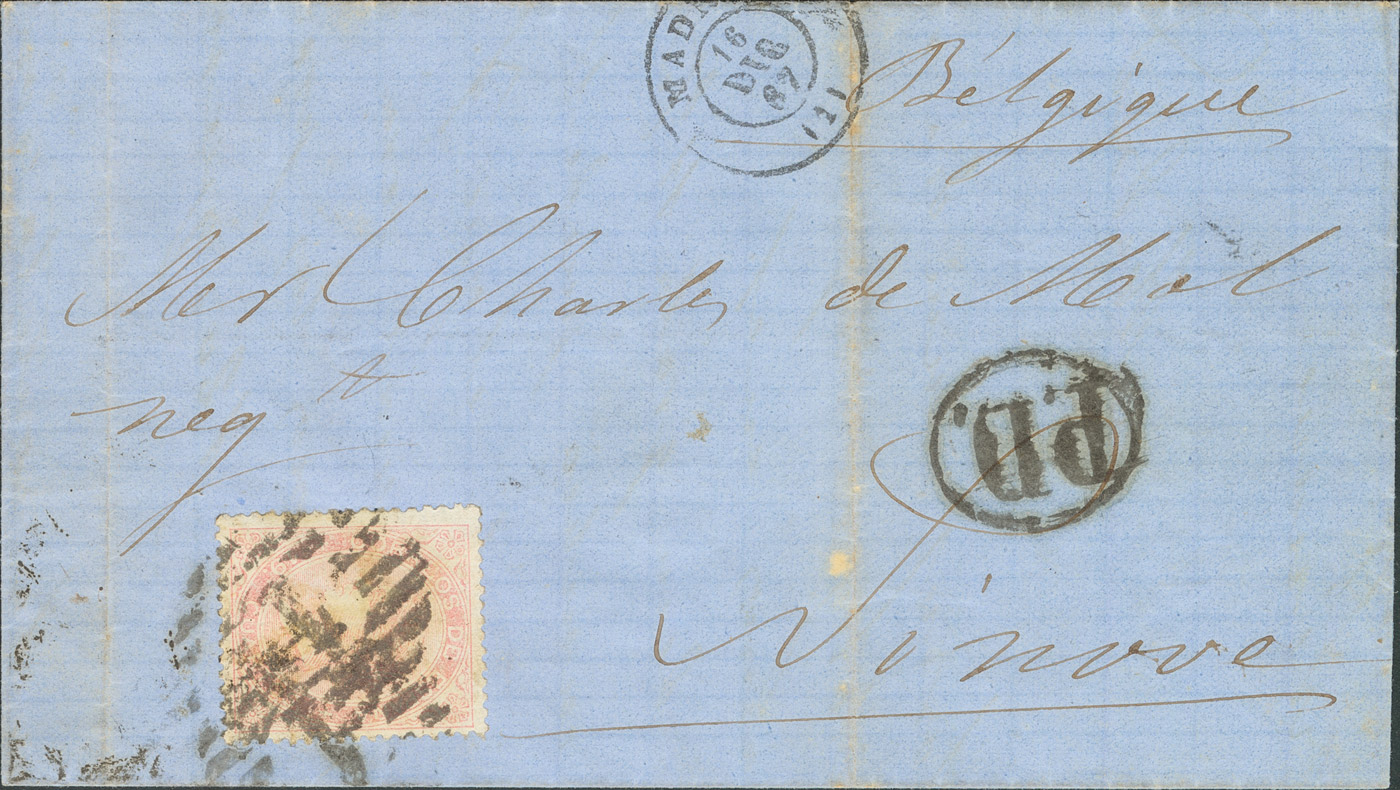 MAD
16
DIC
67
(1)
Bélgique
Mer Charles de Mol
neg t
P.D.
OS D
Ninove